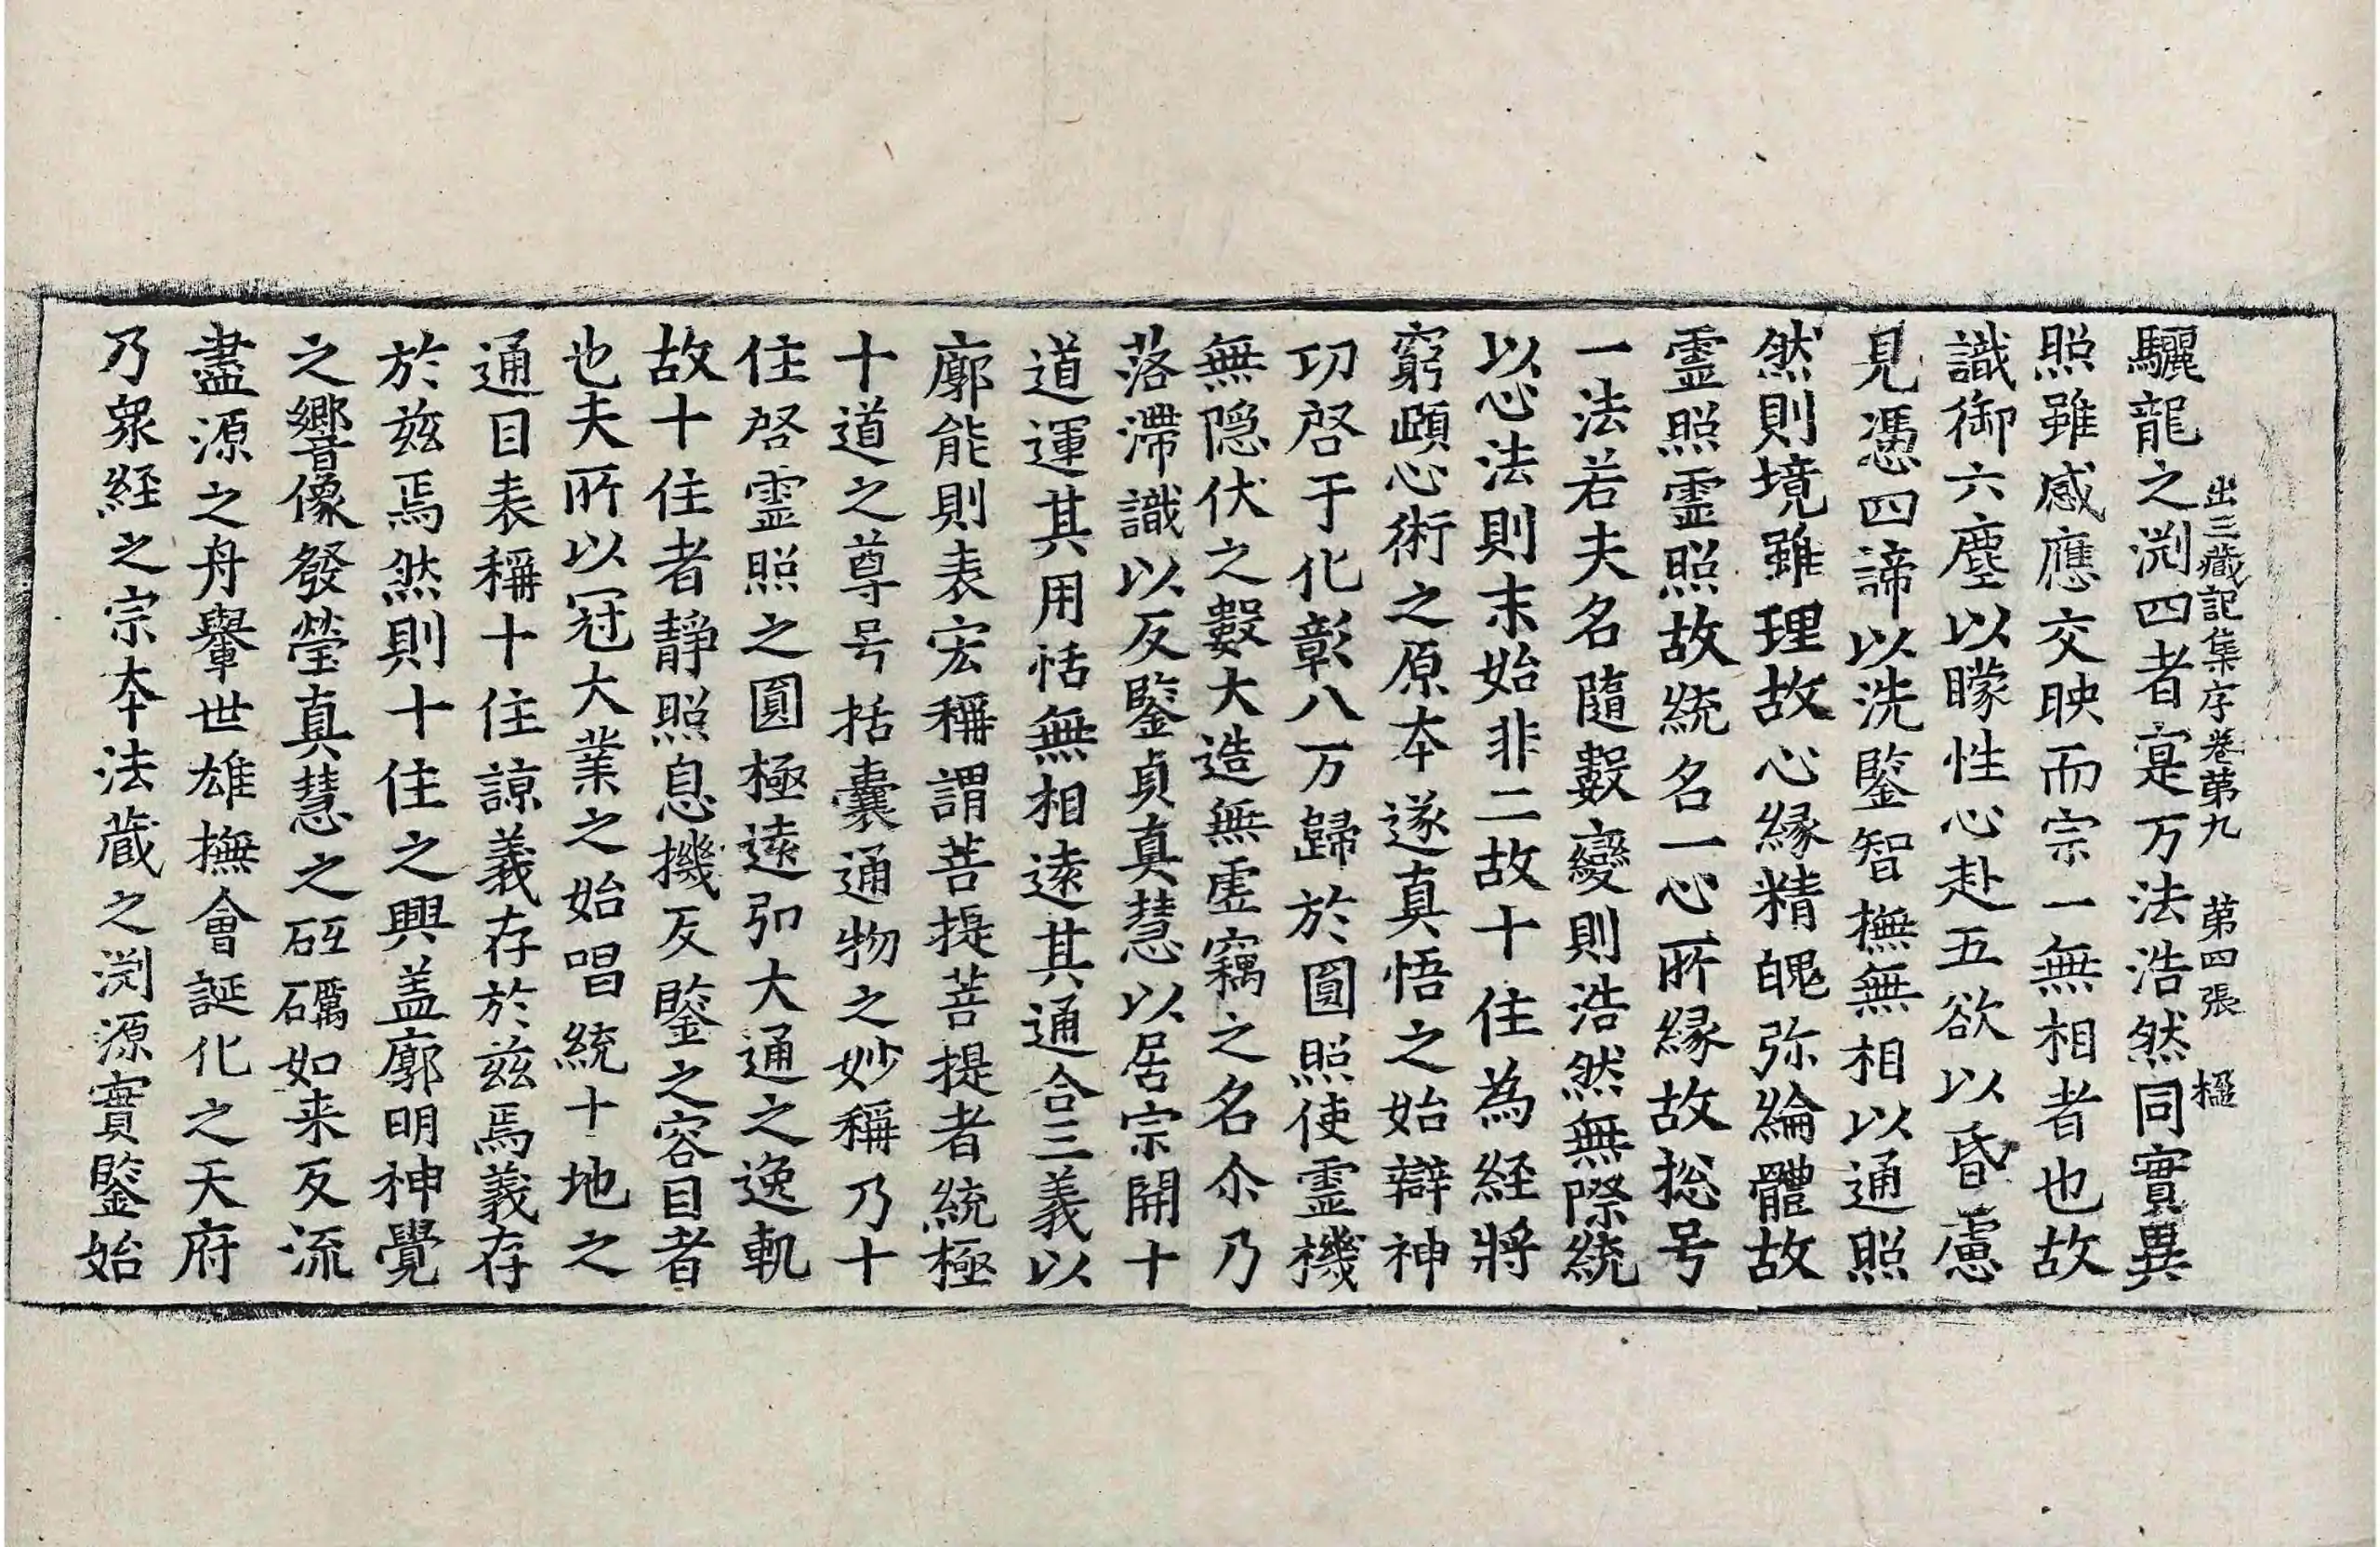 出三藏記集序卷第九　第四張　極
驪龍之渕四者寔万法浩然同實異
照雖感應交映而宗一無相者也故
識御六塵以矇性心赴五欲以昏慮
見憑四諦以洗鑒智撫無相以通照
然則境雖理故心縁精魄弥綸體故
霊照霊照故統名一心所縁故捴号
一法若夫名隨數變則浩然無際統
以心法則末始非二故十住為経將
窮賾心術之原本遂真悟之始辯神
功啓于化彰八万歸於圓照使霊機
無隠伏之數大造無虗竊之名尒乃
落滯識以反鑒貞真慧以居宗開十
道運其用恬無相逺其通合三義以
廓能則表宏稱謂菩提菩提者統極
十道之尊号括囊通物之妙稱乃十
住啓霊照之圓極逺弘大通之逸軌
故十住者静照息機反鑒之容目者
也夫所以冠大業之始唱統十地之
通目表稱十住諒義存於兹焉義存
於兹焉然則十住之興盖廓明神覺
之嚮像發瑩真慧之砥礪如来反流
盡源之舟轝世雄撫會誕化之天府
乃衆経之宗本法蔵之渕源實鑒始